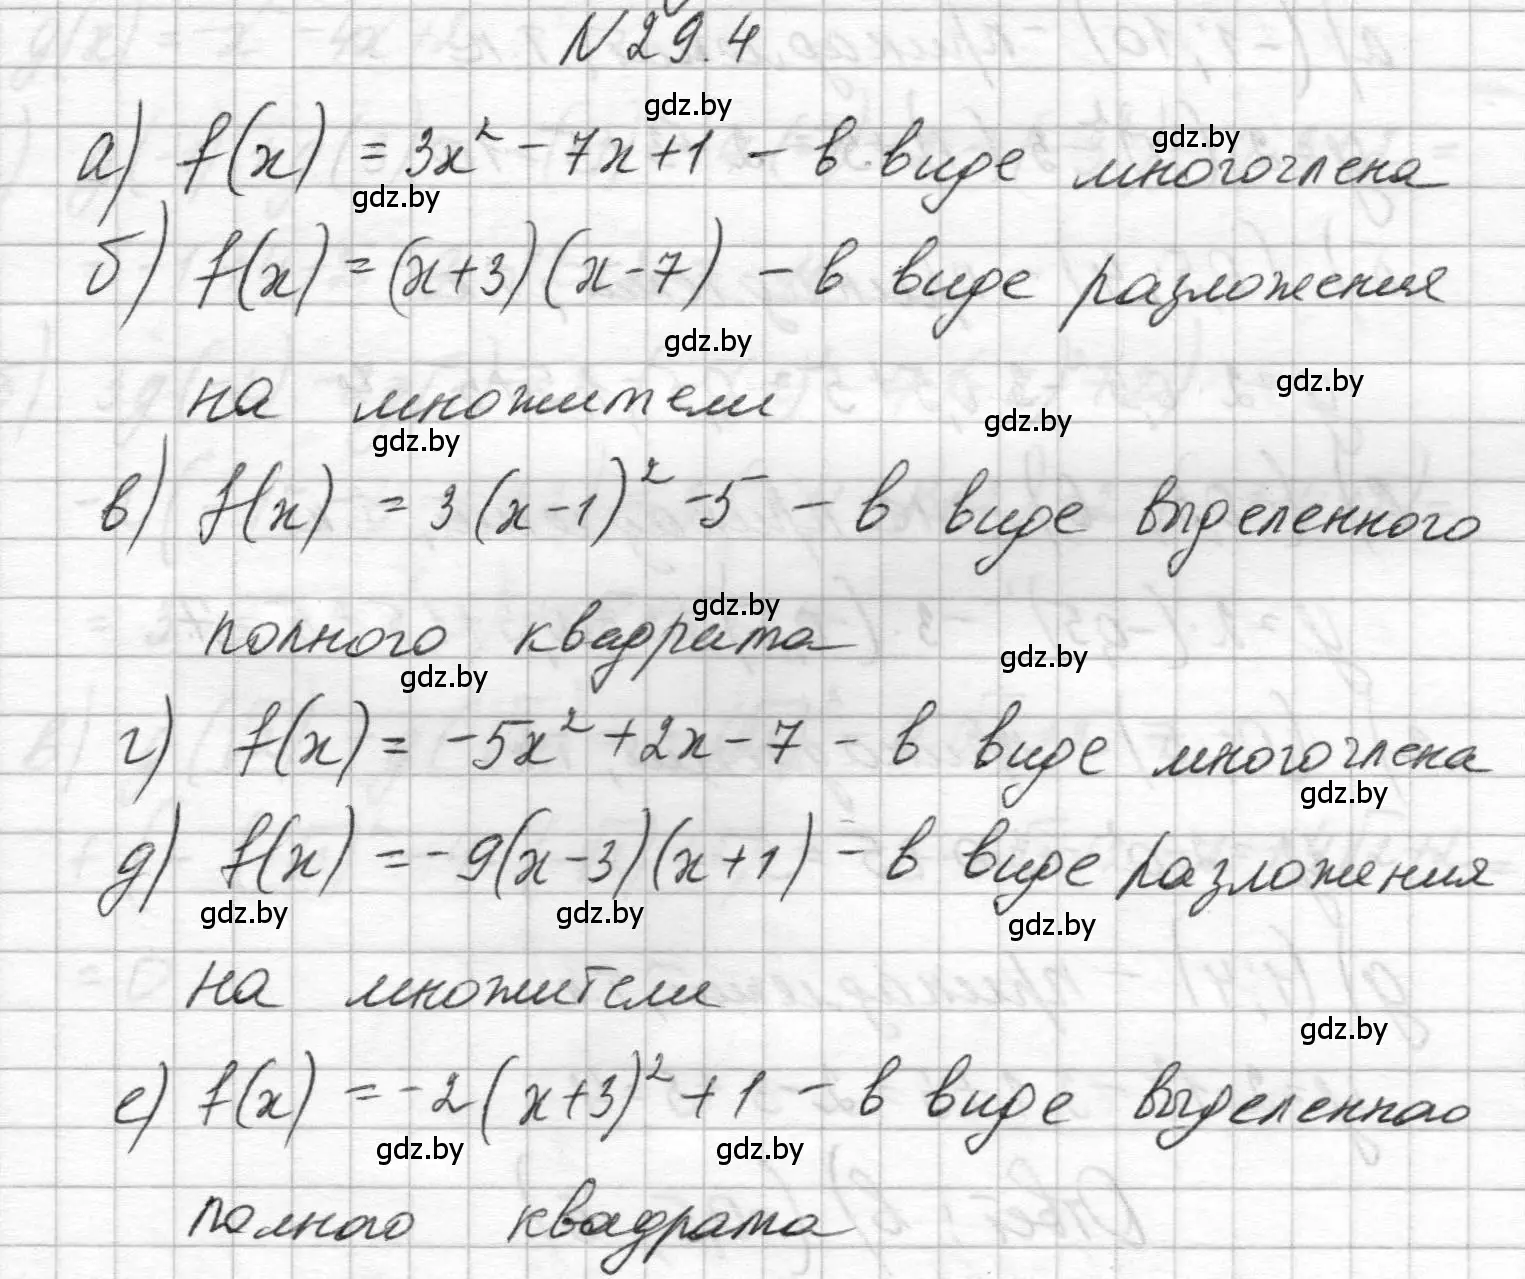 N 29.4
gdz.by
а) f(x) = 3x² - 7x + 1 - в виде многочлена
gdz.by
gdz.by
б) f(x) = (x+3)(x-7) - в виде разложения
gdz.by
на множители
gdz.by
gdz.by
gdz.by
в) f(x) = 3(x-1)² - 5 - в виде выделенного
gdz.by
полного квадрата
gdz.by
gdz.by
г) f(x) = -5x² + 2x - 7 - в виде многочлена
gdz.by
д) f(x) = -9(x-3)(x+1) - в виде разложения
gdz.by gdz.by gdz.by
на множители
gdz.by
е) f(x) = -2(x+3)² + 1 - в виде выделенного
gdz.by gdz.by
полного квадрата